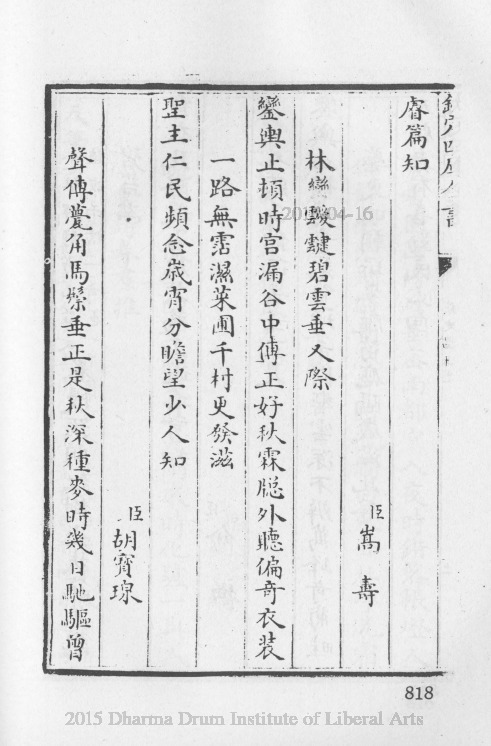 欽定四庫全書
睿篇知
臣嵩壽
林巒靉靆碧雲垂又際
鑾輿止頓時宫漏谷中傳正好秋霖牕外聽偏奇衣裝
一路無霑濕菜圃千村更發滋
聖主仁民頻念歲宵分瞻望少人知
臣胡寶瑔
聲傳畫角馬鬃垂正是秋深種麥時幾日馳驅曾
818
2015 Dharma Drum Institute of Liberal Arts